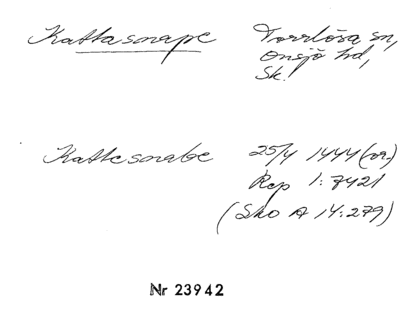 Kattasnape Torrlösa sn,
Onsjö hd,
Sk.
Kattesnabe 25/4 1444 (or.)
Rep 1:7421
(Sko A 14:279)
Nr 23942